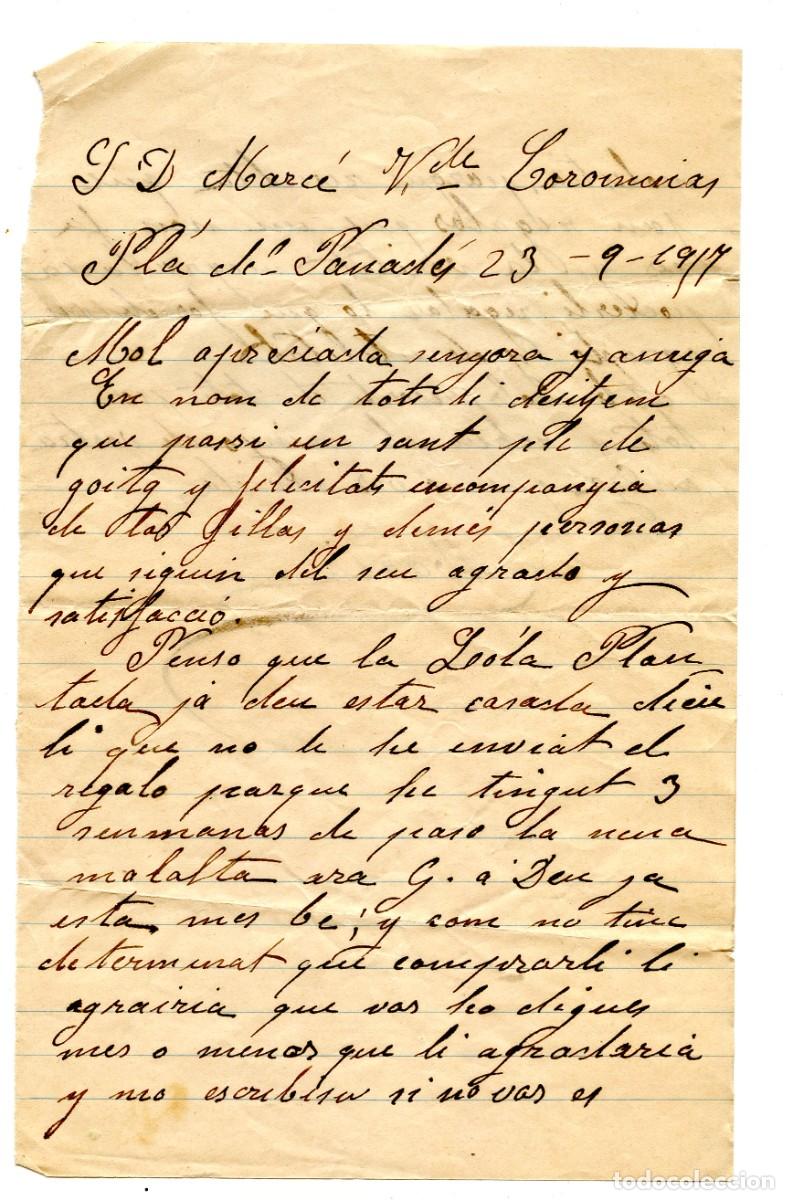 S D Mercé V.de Corominas
Plá del Panadés 23 - 9 - 1917
Mol apresiada senyora y amiga
En nom de tots li desitjem
que passi un sant ple de
goitg y felicitats encompanyia
de las fillas y demés personas
que siguin del seu agrado y
satisfacció.
Penso que la Lóla Plan
tada já deu estar casada dieu
li que no li he enviat el
regalo parque he tingut 3
senmanas de paso la nena
malalta ara G. a Deu ja
esta mes be; y com no tinc
determinat que comprarli li
agrairia que vos ho digues
mes o menos que li agradaria
y mo escribiseu si no vos es
todocoleccion